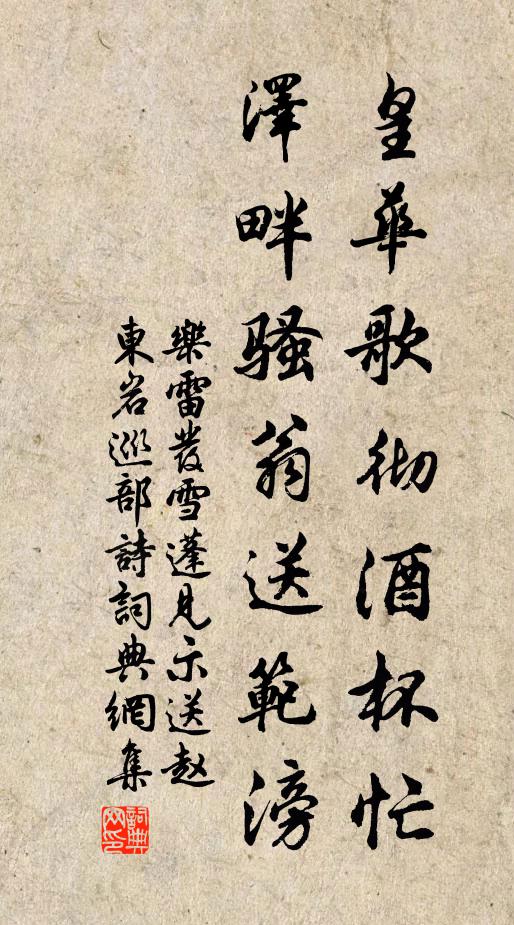 皇華歌彻酒杯忙
澤畔骚翁送範滂
樂雷發雪蓬見示送赵
東岩巡部詩詞典網集
詞典
网印